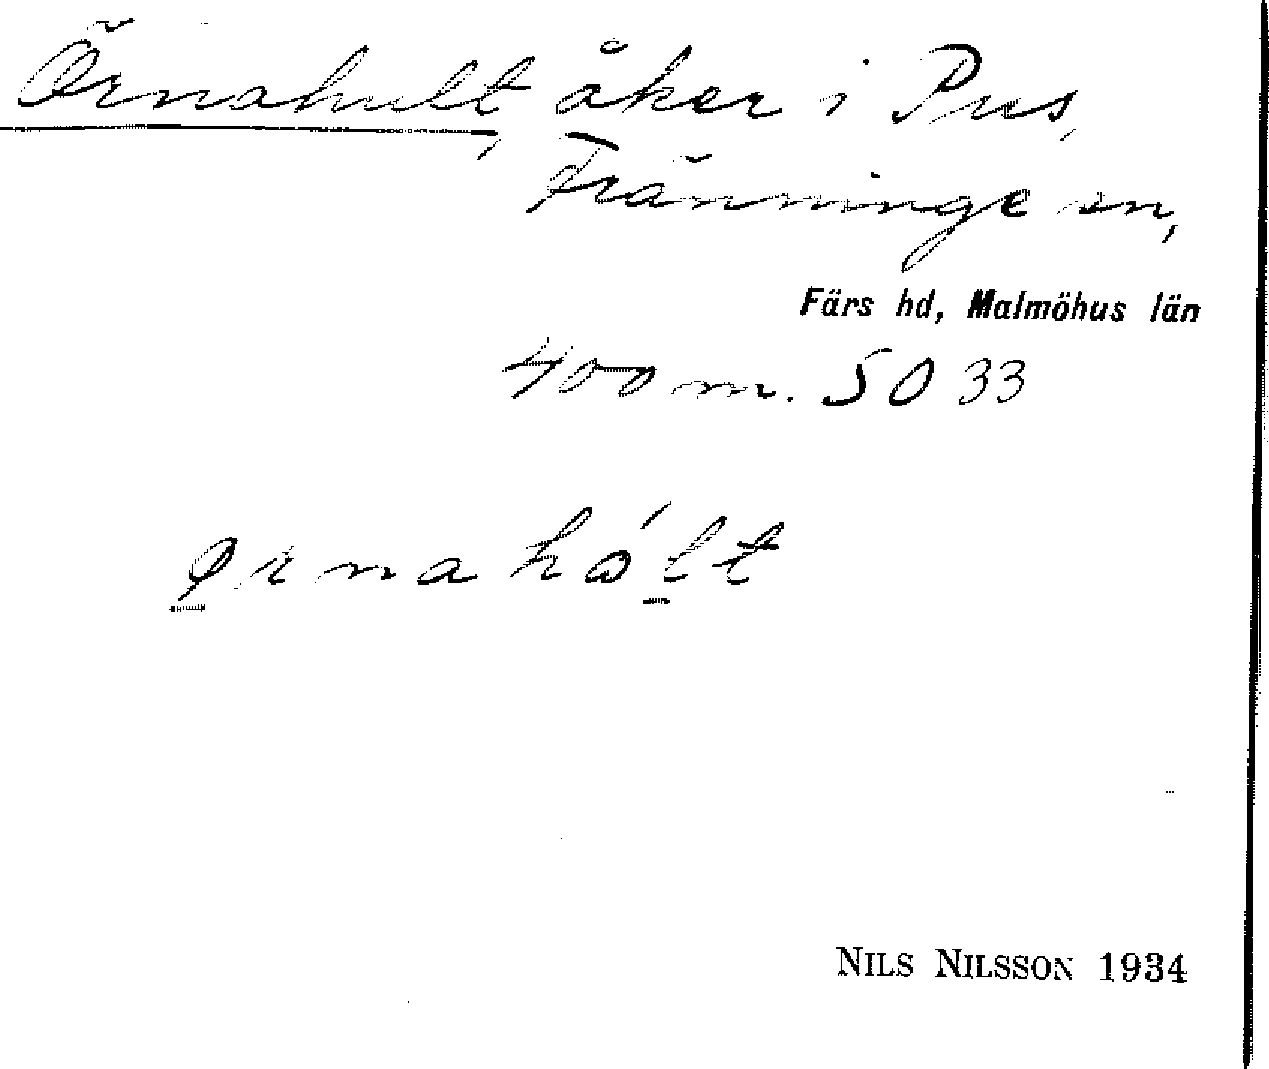 Örnahult, åker i Pus,
Fränninge sn,
Färs hd, Malmöhus län
400 m. SO 33
ørnahólt
NILS NILSSON 1934